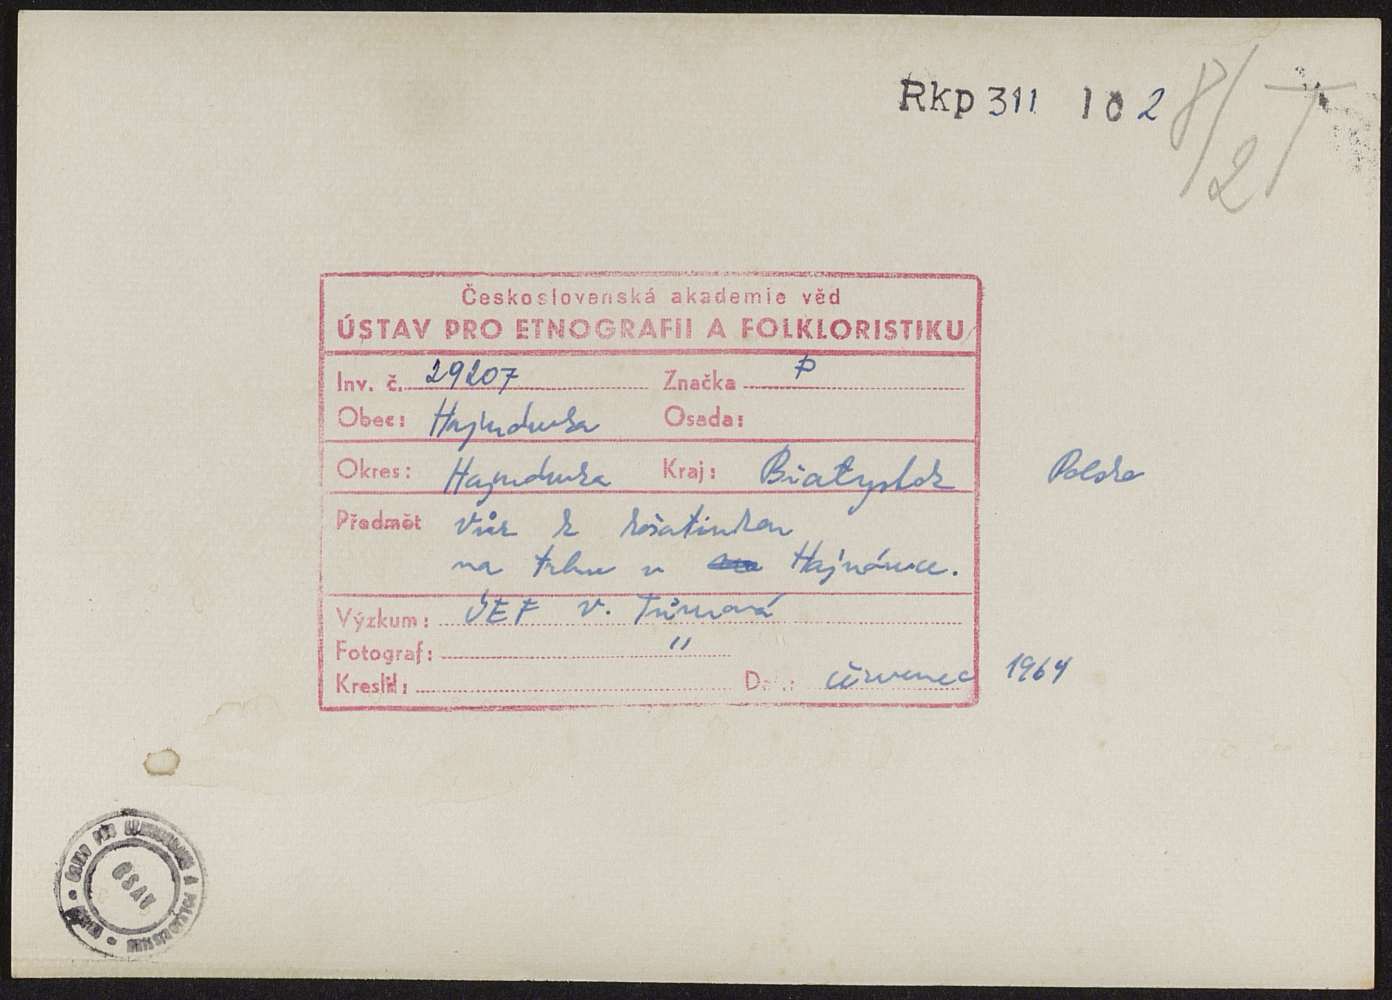 Rkp 311 102
8/2 T
Československá akademie věd
ÚSTAV PRO ETNOGRAFII A FOLKLORISTIKU
Inv. č. 29207 Značka P
Obec: Hajnówka Osada:
Okres: Hajnówka Kraj: Białystok Polsko
Předmět Vůz s košatinkou
na trhu v Hajnówce.
Výzkum: ÚEF V. Tůmová
Fotograf: "
Kreslil: Dat.: červenec 1964
ÚSTAV PRO ETNOGRAFII A FOLKLORISTIKU
ČSAV